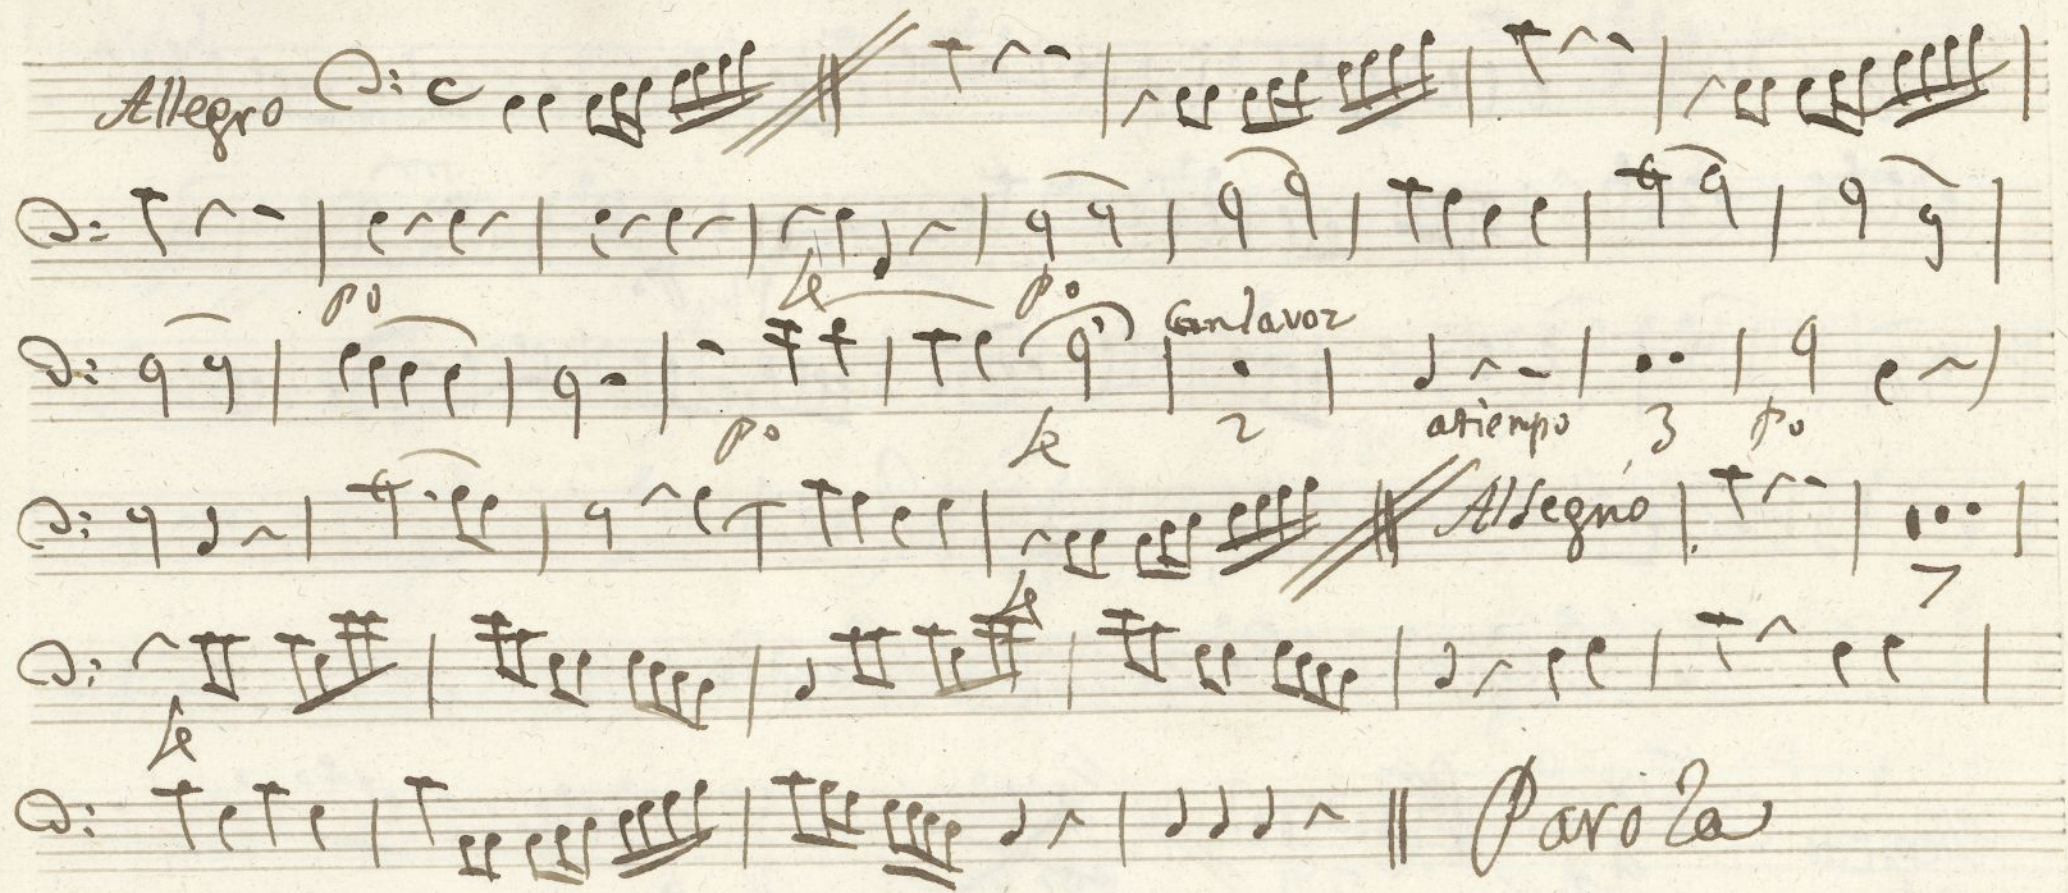 Allegro
po fe p.o
Con la voz
po fe 2 atiempo 3 po
Al Segno
fe 7
fe
Parola